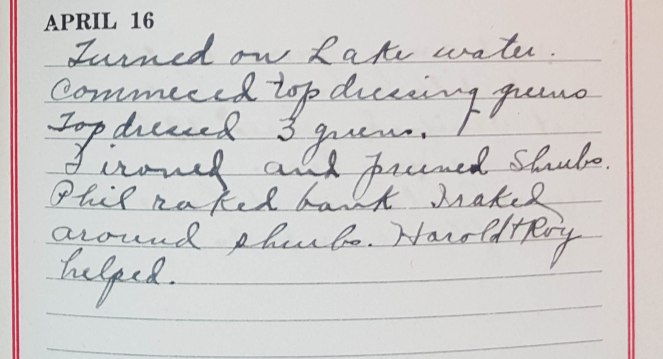 APRIL 16
Turned on Lake water.
Commeced top dressing greens
Top dressed 3 greens.
I ironed and pruned Shrubs.
Phil raked bank I raked
around shrubs. Harold + Roy
helped.